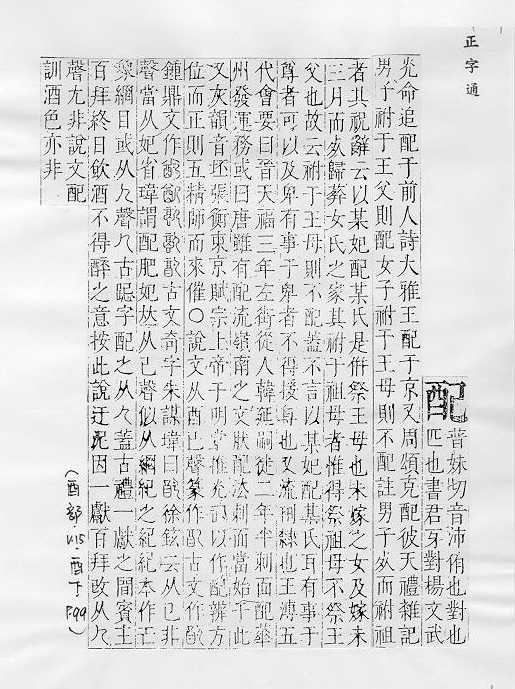 正字通
配 普妹切音沛侑也對也
匹也書君牙對揚文武
光命追配于前人詩大雅王配于京又周頌克配彼天禮雜記
男子祔于王父則配女子祔于王母則不配註男子死而祔祖
者其祝辭云以某妃配某氏是併祭王母也未嫁之女及嫁未
三月而死歸葬女氏之家其祔于祖母者惟得祭祖母不祭王
父也故云祔于王母則不配蓋不言以某妃配某氏耳有事于
尊者可以及卑有事于卑者不得援尊也又流刑隸也王溥五
代會要曰晉天福三年左街從人韓延嗣徒二年半刺面配華
州發運務或曰唐雖有配流嶺南之文狀配法刺面當始于此
又灰韻音坯張衡東京賦宗上帝于明堂推光武以作配辯方
位而正則五精帥而來催○說文从酉己聲篆作古文作
鍾鼎文作古文奇字朱謀瑋曰徐鉉云从己非
聲當从妃省瑋謂配肥妃从己聲似从綱紀之紀紀本作
象網目或从聲古字配之从蓋古禮一獻之間賓主
百拜終日飲酒不得醉之意按此說迂死因一獻百拜故从
聲尤非說文配
訓酒色亦非
(酉部.V.15.酉下P.99)